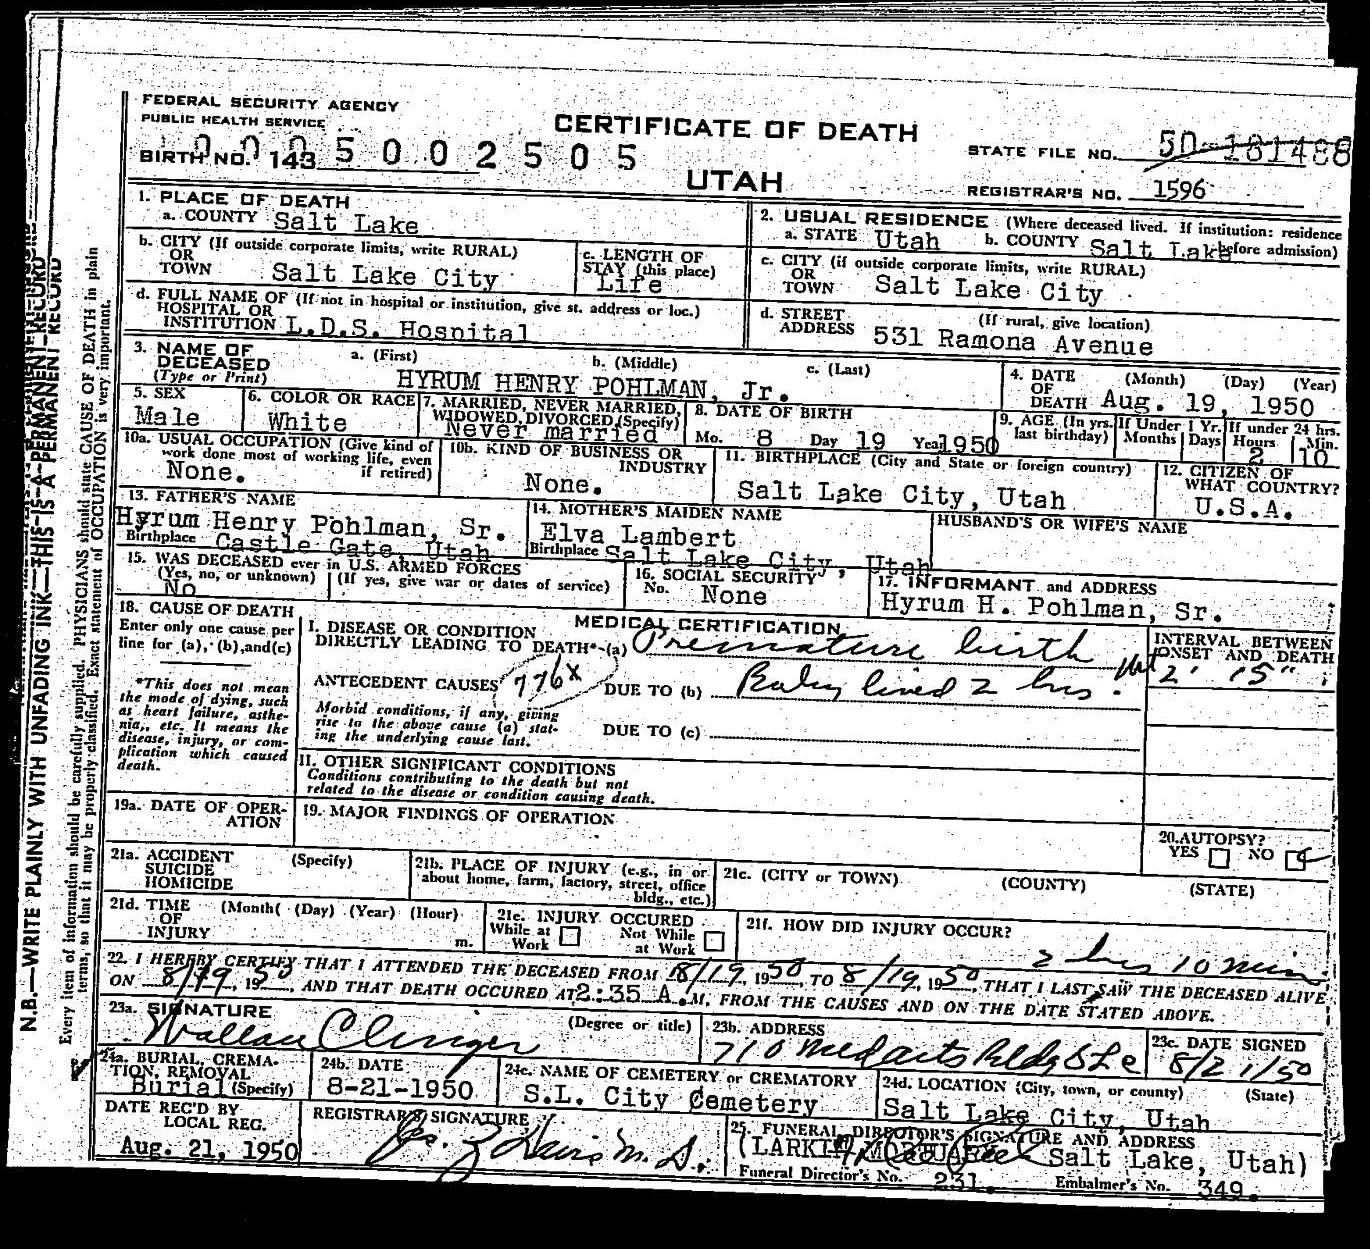 FEDERAL SECURITY AGENCY
PUBLIC HEALTH SERVICE
CERTIFICATE OF DEATH
STATE FILE NO. 50-181488
BIRTH NO. 143
0005002505
UTAH
REGISTRAR'S NO. 1596
1. PLACE OF DEATH
a. COUNTY Salt Lake
2. USUAL RESIDENCE (Where deceased lived. If institution: residence before admission)
a. STATE Utah b. COUNTY Salt Lake
b. CITY (If outside corporate limits, write RURAL)
OR
TOWN Salt Lake City
c. LENGTH OF
STAY (this place)
Life
c. CITY (if outside corporate limits, write RURAL)
OR
TOWN Salt Lake City
d. FULL NAME OF (If not in hospital or institution, give st. address or loc.)
HOSPITAL OR
INSTITUTION L.D.S. Hospital
d. STREET (If rural, give location)
ADDRESS 531 Ramona Avenue
3. NAME OF a. (First) b. (Middle) c. (Last)
DECEASED
(Type or Print) HYRUM HENRY POHLMAN, Jr.
4. DATE (Month) (Day) (Year)
OF
DEATH Aug. 19, 1950
5. SEX
Male
6. COLOR OR RACE
White
7. MARRIED, NEVER MARRIED,
WIDOWED, DIVORCED (Specify)
Never married
8. DATE OF BIRTH
Mo. 8 Day 19 Year 1950
9. AGE (In yrs. last birthday)
If Under 1 Yr. Months Days
If under 24 hrs. Hours Min.
2 10
10a. USUAL OCCUPATION (Give kind of
work done most of working life, even
if retired)
None.
10b. KIND OF BUSINESS OR
INDUSTRY
None.
11. BIRTHPLACE (City and State or foreign country)
Salt Lake City, Utah
12. CITIZEN OF
WHAT COUNTRY?
U.S.A.
13. FATHER'S NAME
Hyrum Henry Pohlman, Sr.
Birthplace Castle Gate, Utah
14. MOTHER'S MAIDEN NAME
Elva Lambert
Birthplace Salt Lake City, Utah
HUSBAND'S OR WIFE'S NAME
15. WAS DECEASED ever in U.S. ARMED FORCES
(Yes, no, or unknown) (If yes, give war or dates of service)
No
16. SOCIAL SECURITY
No. None
17. INFORMANT and ADDRESS
Hyrum H. Pohlman, Sr.
18. CAUSE OF DEATH
Enter only one cause per
line for (a), (b), and (c)
*This does not mean
the mode of dying, such
as heart failure, asthe-
nia,, etc. It means the
disease, injury, or com-
plication which caused
death.
MEDICAL CERTIFICATION
I. DISEASE OR CONDITION
DIRECTLY LEADING TO DEATH*-(a) Premature birth
INTERVAL BETWEEN
ONSET AND DEATH
2' 15"
ANTECEDENT CAUSES 776x DUE TO (b) Baby lived 2 hrs.
Morbid conditions, if any, giving
rise to the above cause (a) stat-
ing the underlying cause last.
DUE TO (c)
II. OTHER SIGNIFICANT CONDITIONS
Conditions contributing to the death but not
related to the disease or condition causing death.
19a. DATE OF OPER-
ATION
19. MAJOR FINDINGS OF OPERATION
20. AUTOPSY?
YES NO
21a. ACCIDENT (Specify)
SUICIDE
HOMICIDE
21b. PLACE OF INJURY (e.g., in or
about home, farm, factory, street, office
bldg., etc.)
21c. (CITY or TOWN) (COUNTY) (STATE)
21d. TIME (Month( (Day) (Year) (Hour)
OF
INJURY m.
21e. INJURY OCCURED
While at Work Not While at Work
21f. HOW DID INJURY OCCUR?
2 hrs 10 min
22. I HEREBY CERTIFY THAT I ATTENDED THE DECEASED FROM 8/19, 1950, TO 8/19, 1950, THAT I LAST SAW THE DECEASED ALIVE
ON 8/19, 1950, AND THAT DEATH OCCURED AT 2:35 A.M. FROM THE CAUSES AND ON THE DATE STATED ABOVE.
23a. SIGNATURE (Degree or title)
23b. ADDRESS
710 Med arts Bldg SLC
23c. DATE SIGNED
8/21/50
24a. BURIAL, CREMA-
TION, REMOVAL
Burial (Specify)
24b. DATE
8-21-1950
24c. NAME OF CEMETERY or CREMATORY
S.L. City Cemetery
24d. LOCATION (City, town, or county) (State)
Salt Lake City, Utah
DATE REC'D BY
LOCAL REG.
Aug. 21, 1950
REGISTRAR'S SIGNATURE
25. FUNERAL DIRECTOR'S SIGNATURE AND ADDRESS
(LARKIN MORTUARY Salt Lake, Utah)
Funeral Director's No. 231. Embalmer's No. 349.
N.B.—WRITE PLAINLY WITH UNFADING INK—THIS IS A PERMANENT RECORD
Every item of information should be carefully supplied. PHYSICIANS should state CAUSE OF DEATH in plain
terms, so that it may be properly classified. Exact statement of OCCUPATION is very important.